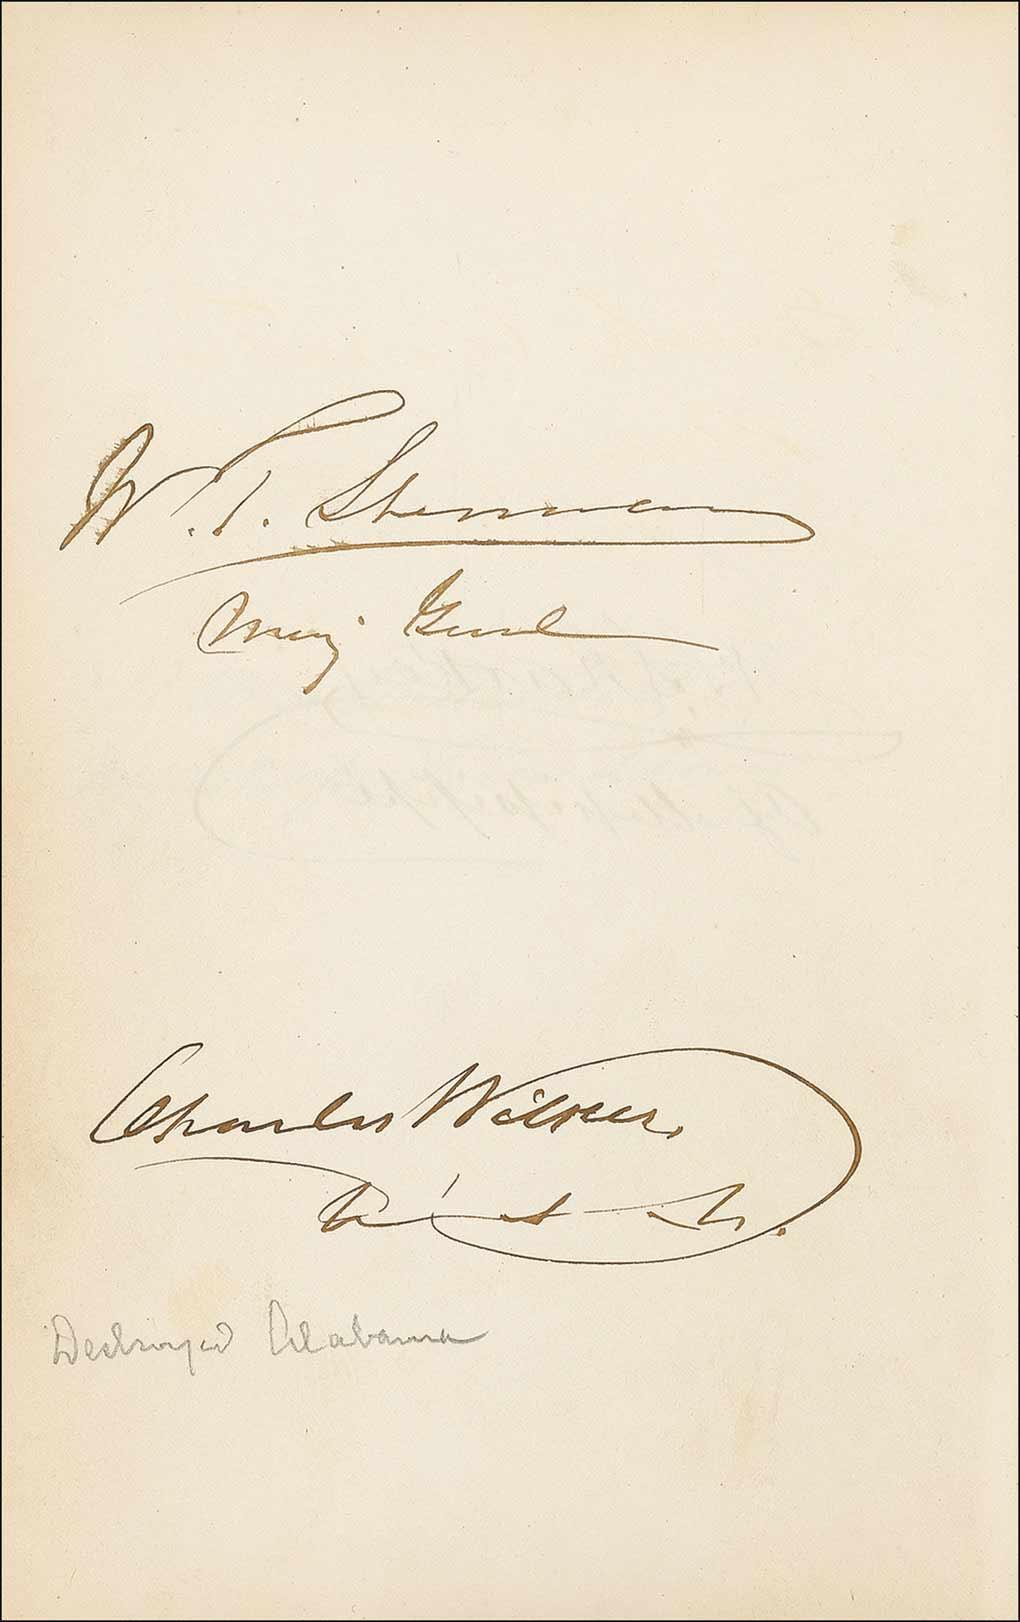 W. T. Sherman
Maj Genl
Charles Wilkes.
U. S. N.
Destroyed Alabama